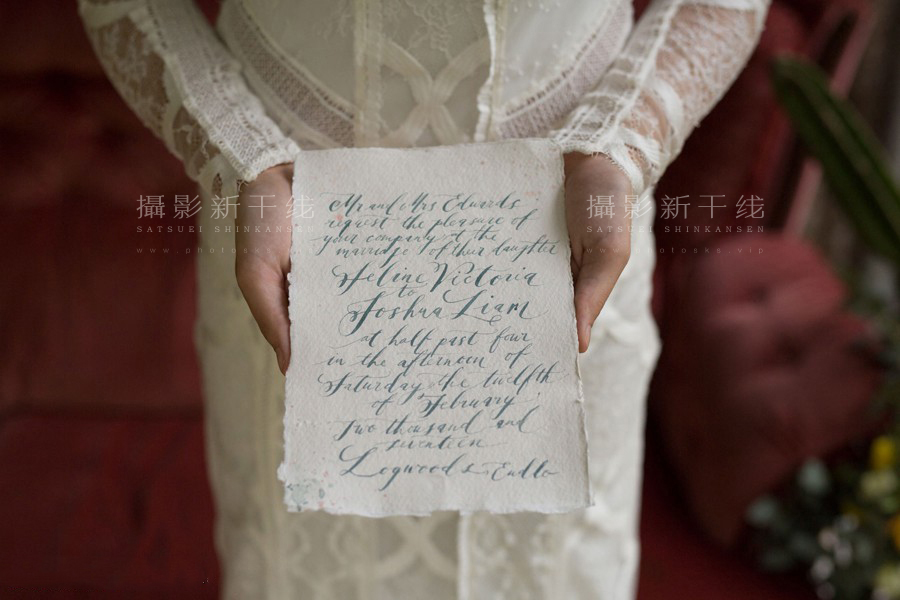 Mr and Mrs Edwards
request the pleasure of
your company at the
marriage of their daughter
Heline Victoria
to
Joshua Liam
at half past four
in the afternoon of
Saturday the twelfth
of February
Two thousand and
seventeen
攝影新干线
SATSUEI SHINKANSEN
www.photosks.vip
攝影新干线
SATSUEI SHINKANSEN
www.photosks.vip